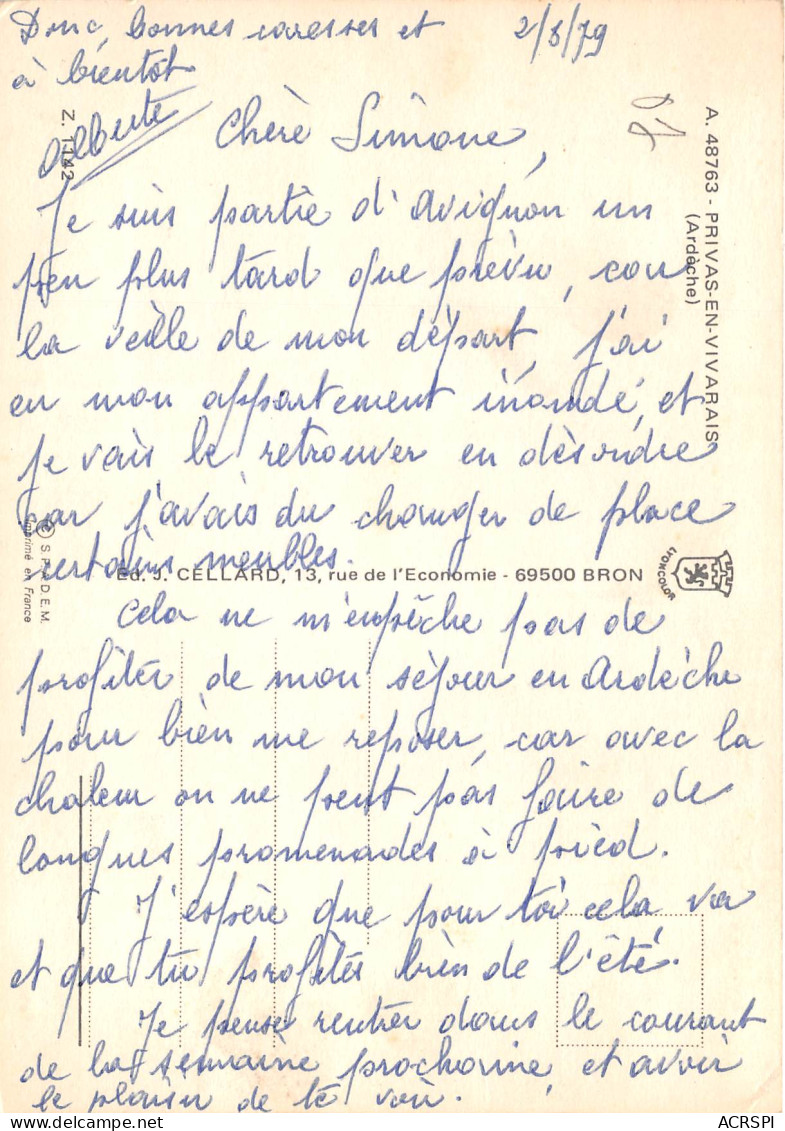 Donc, bonnes caresses et 2/8/79
à bientôt
Alberte
Chère Simone,
Je suis partie d'Avignon un
peu plus tard que prévu, car
la veille de mon départ, j'ai
eu mon appartement inondé, et
je vais le retrouver en désordre
car j'avais du changer de place
certains meubles.
Cela ne m'empêche pas de
profiter de mon séjour en Ardèche
pour bien me reposer, car avec la
chaleur on ne peut pas faire de
longues promenades à pied.
J'espère que pour toi cela va
et que tu profites bien de l'été.
Je pense rentrer dans le courant
de la semaine prochaine, et avoir
le plaisir de te voir.
07
Z. 1142
A. 48763 - PRIVAS-EN-VIVARAIS
(Ardèche)
© S.P.A.D.E.M.
Imprimé en France
Ed. J. CELLARD, 13, rue de l'Economie - 69500 BRON
LYONCOLOR
ACRSPI